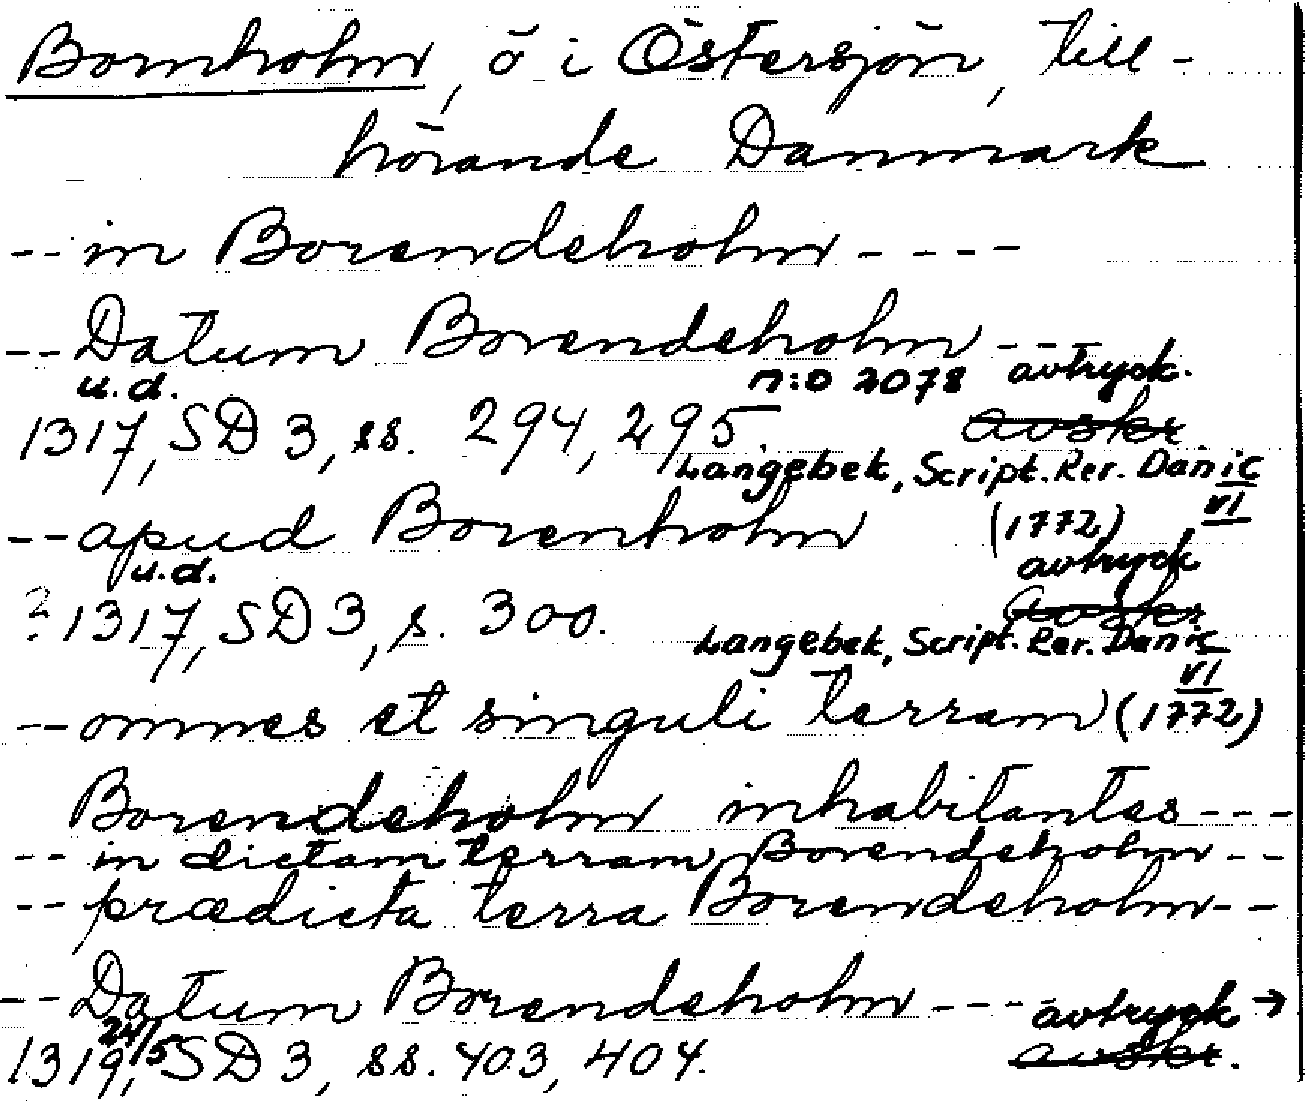 Bornholm, ö i Östersjön, till-
hörande Danmark
-- in Borendeholm ----
-- Datum Borendeholm ---
u.d. n:o 2078 avtryck.
1317, SD 3, ss. 294, 295. avskr.
Langebek, Script. Rer. Danic
VI
-- apud Borenholm (1772)
u.d. avtryck
? 1317, SD 3, s. 300. avskr
Langebek, Script. Rer. Danic
VI
-- omnes et singuli terram (1772)
Borendeholm inhabitantes ---
-- in dictam terram Borendeholm --
-- prædicta terra Borendeholm --
-- Datum Borendeholm ---- avtryck →
24/5
1319, SD 3, ss. 403, 404. avskr.